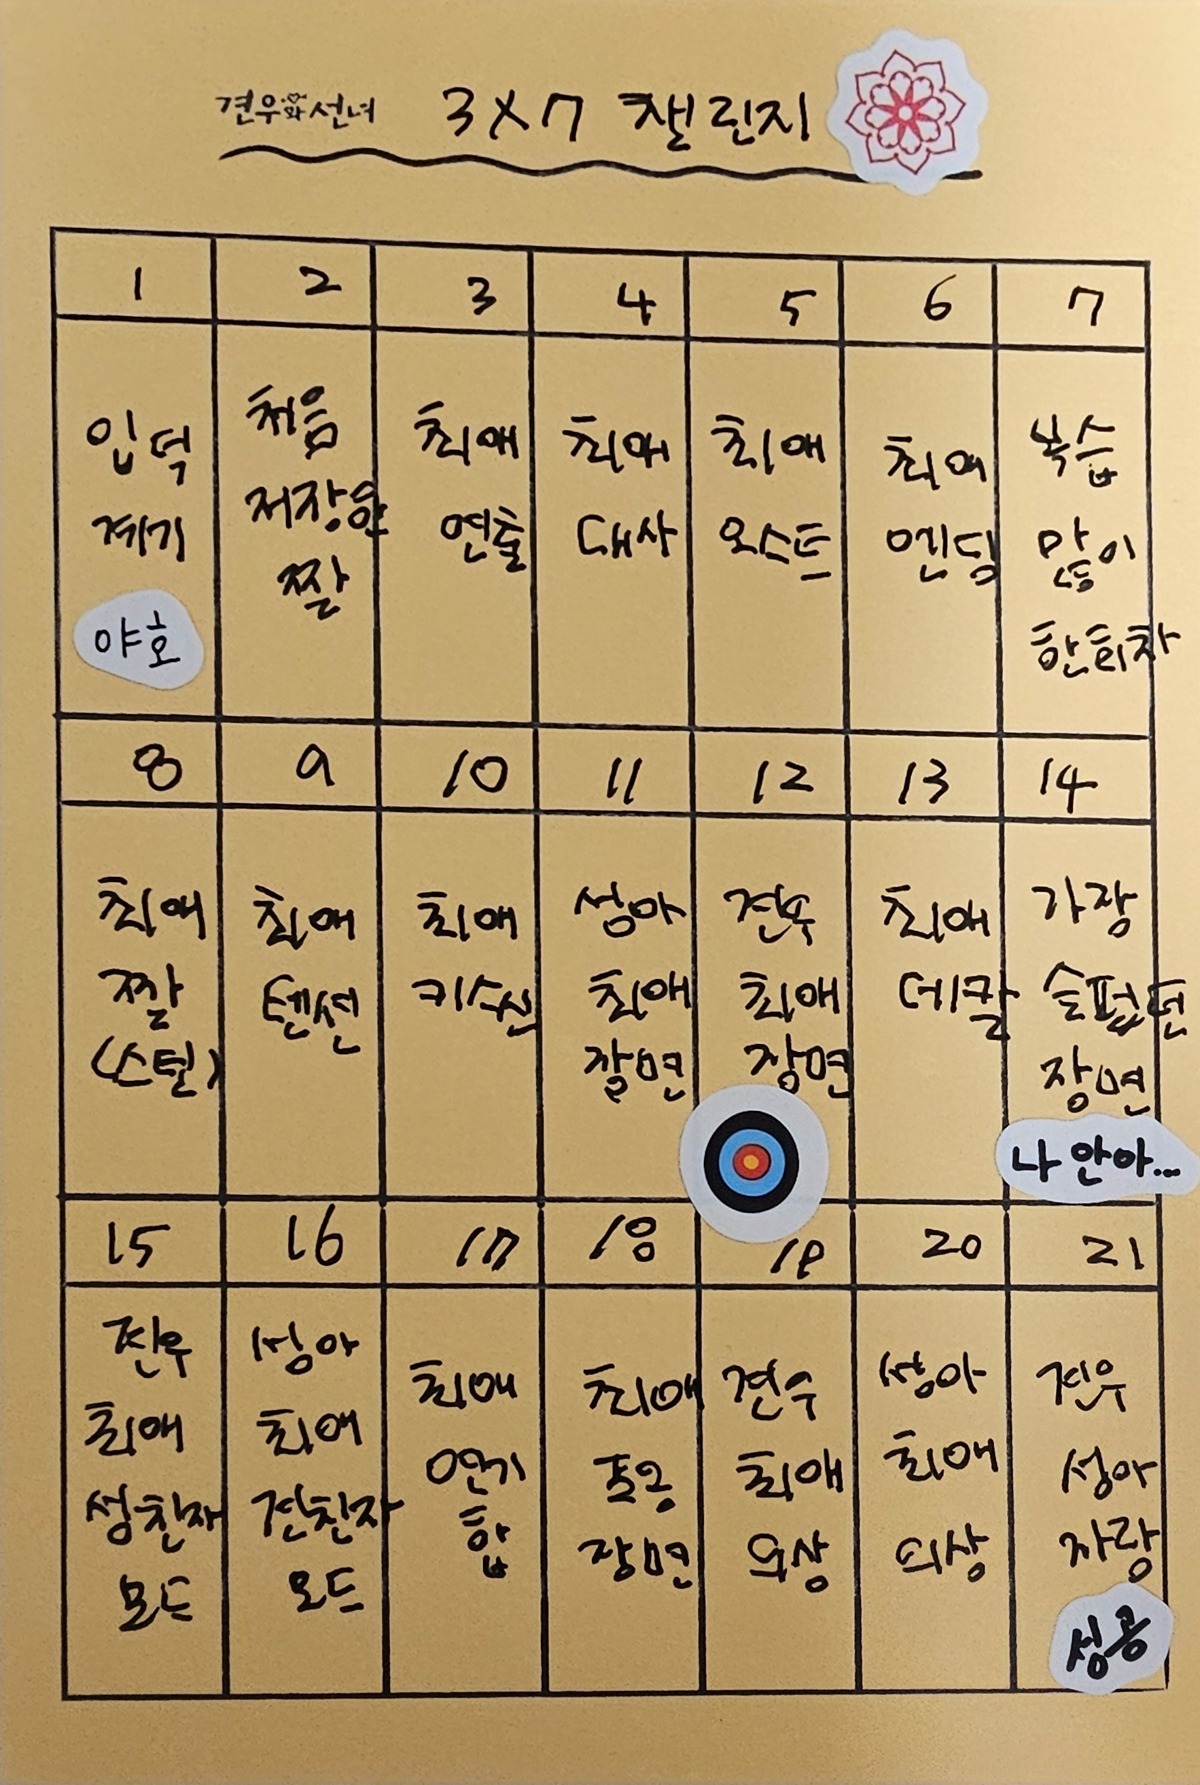 견우와선녀 3X7 챌린지
1 2 3 4 5 6 7
입덕
계기
야호
처음
저장한
짤
최애
연출
최애
대사
최애
오스트
최애
엔딩
복습
많이
한회차
8 9 10 11 12 13 14
최애
짤
(스틸)
최애
텐션
최애
키수신
성아
최애
장면
견우
최애
장면
최애
데칼
가장
슬펐던
장면
나 안아...
15 16 17 18 19 20 21
견우
최애
성친자
모드
성아
최애
견친자
모드
최애
연기
합
최애
포옹
장면
견우
최애
의상
성아
최애
의상
견우
성아
자랑
성공